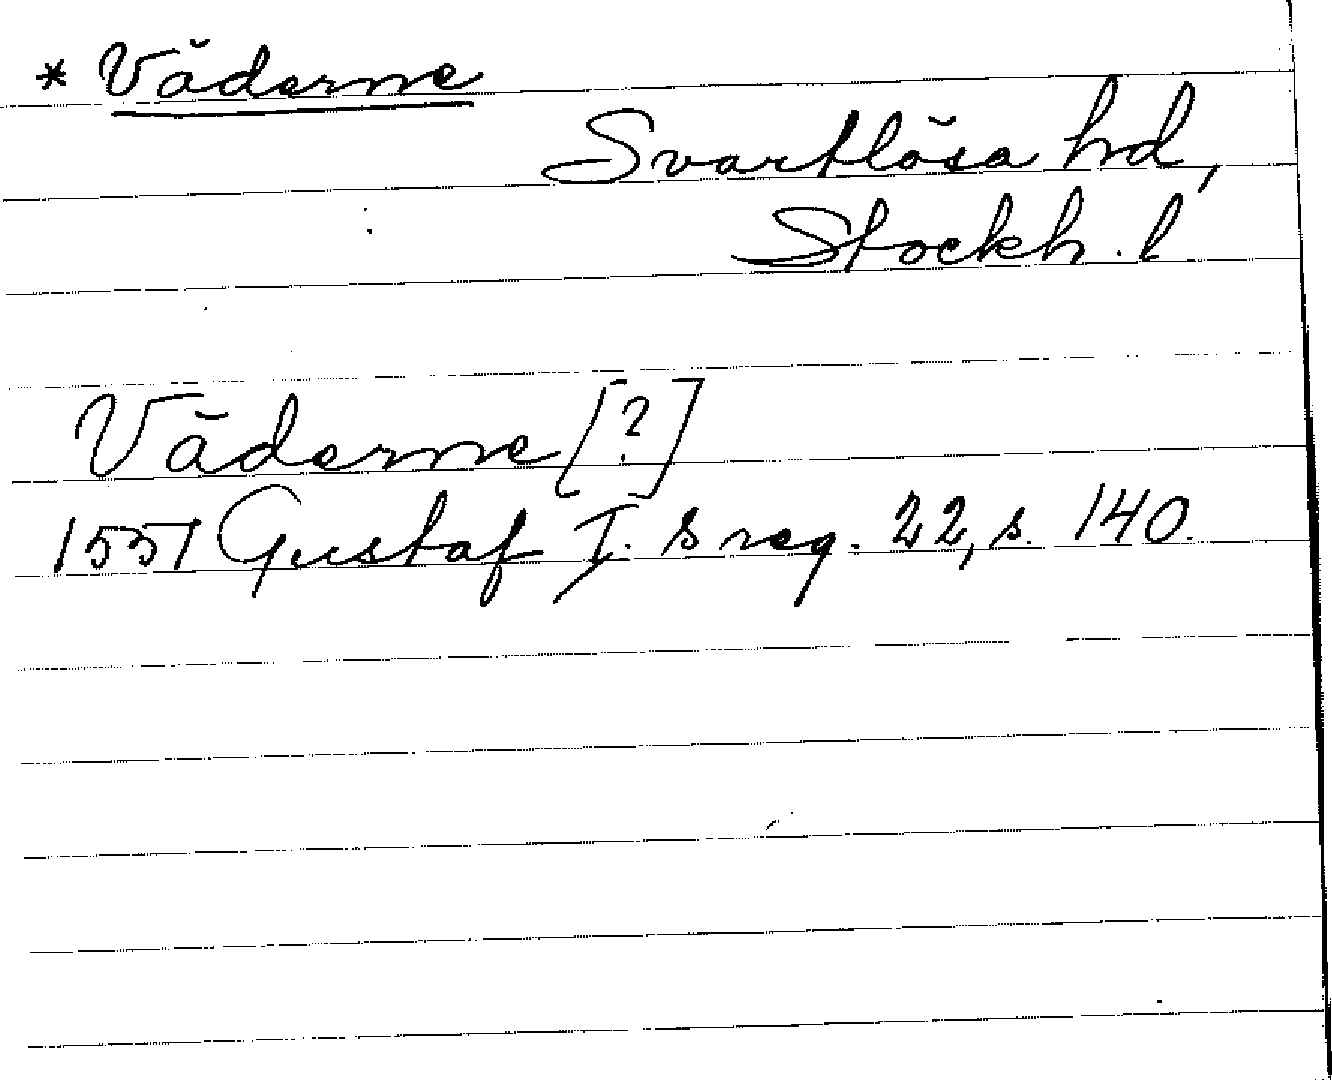 * Väderne
Svartlösa hd,
Stockh. l
Väderne [?]
1551 Gustaf I. s reg. 22, s. 140.